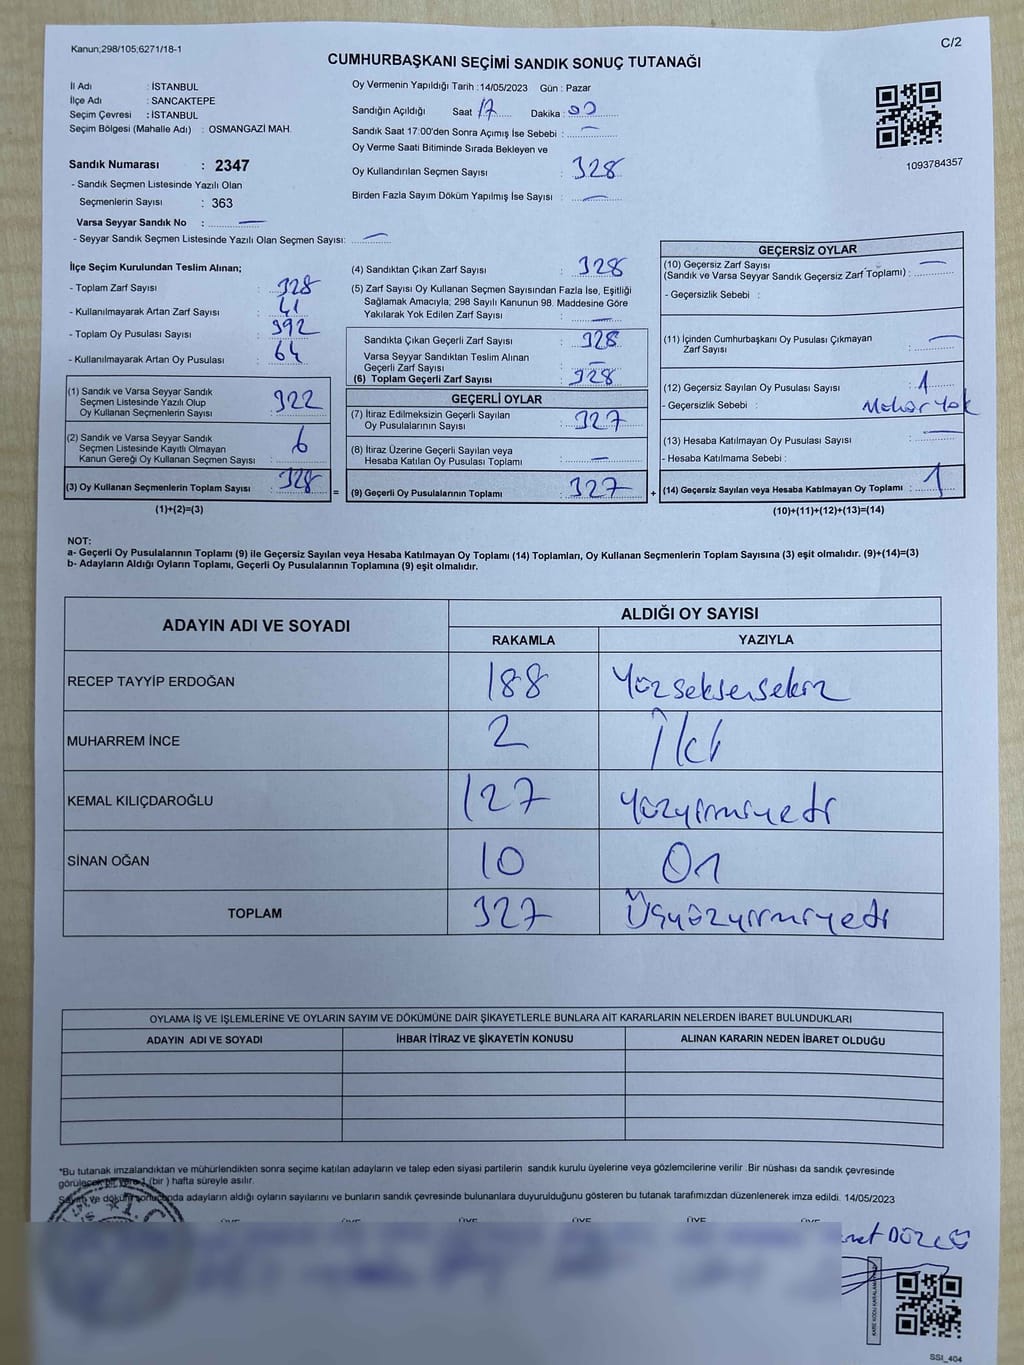 Kanun;298/105;6271/18-1
C/2
CUMHURBAŞKANI SEÇİMİ SANDIK SONUÇ TUTANAĞI
İl Adı : İSTANBUL
İlçe Adı : SANCAKTEPE
Seçim Çevresi : İSTANBUL
Seçim Bölgesi (Mahalle Adı) : OSMANGAZİ MAH.
Sandık Numarası : 2347
- Sandık Seçmen Listesinde Yazılı Olan
Seçmenlerin Sayısı : 363
Varsa Seyyar Sandık No : —
- Seyyar Sandık Seçmen Listesinde Yazılı Olan Seçmen Sayısı: —
Oy Vermenin Yapıldığı Tarih :14/05/2023 Gün : Pazar
Sandığın Açıldığı Saat 17 Dakika : 00
Sandık Saat 17:00'den Sonra Açımış İse Sebebi : —
Oy Verme Saati Bitiminde Sırada Bekleyen ve
Oy Kullandırılan Seçmen Sayısı : 328
Birden Fazla Sayım Döküm Yapılmış İse Sayısı : —
1093784357
İlçe Seçim Kurulundan Teslim Alınan;
- Toplam Zarf Sayısı : 328
- Kullanılmayarak Artan Zarf Sayısı : 41
- Toplam Oy Pusulası Sayısı : 392
- Kullanılmayarak Artan Oy Pusulası : 64
(1) Sandık ve Varsa Seyyar Sandık
Seçmen Listesinde Yazılı Olup
Oy Kullanan Seçmenlerin Sayısı : 322
(2) Sandık ve Varsa Seyyar Sandık
Seçmen Listesinde Kayıtlı Olmayan
Kanun Gereği Oy Kullanan Seçmen Sayısı : 6
(3) Oy Kullanan Seçmenlerin Toplam Sayısı : 328
(1)+(2)=(3)
(4) Sandıktan Çıkan Zarf Sayısı : 328
(5) Zarf Sayısı Oy Kullanan Seçmen Sayısından Fazla İse, Eşitliği
Sağlamak Amacıyla; 298 Sayılı Kanunun 98. Maddesine Göre
Yakılarak Yok Edilen Zarf Sayısı : —
Sandıkta Çıkan Geçerli Zarf Sayısı : 328
Varsa Seyyar Sandıktan Teslim Alınan
Geçerli Zarf Sayısı : —
(6) Toplam Geçerli Zarf Sayısı : 328
GEÇERLİ OYLAR
(7) İtiraz Edilmeksizin Geçerli Sayılan
Oy Pusulalarının Sayısı : 327
(8) İtiraz Üzerine Geçerli Sayılan veya
Hesaba Katılan Oy Pusulası Toplamı : —
= (9) Geçerli Oy Pusulalarının Toplamı : 327 +
GEÇERSİZ OYLAR
(10) Geçersiz Zarf Sayısı
(Sandık ve Varsa Seyyar Sandık Geçersiz Zarf Toplamı) : —
- Geçersizlik Sebebi :
(11) İçinden Cumhurbaşkanı Oy Pusulası Çıkmayan
Zarf Sayısı : —
(12) Geçersiz Sayılan Oy Pusulası Sayısı : 1
- Geçersizlik Sebebi : Mühür Yok
(13) Hesaba Katılmayan Oy Pusulası Sayısı : —
- Hesaba Katılmama Sebebi :
(14) Geçersiz Sayılan veya Hesaba Katılmayan Oy Toplamı : 1
(10)+(11)+(12)+(13)=(14)
NOT:
a- Geçerli Oy Pusulalarının Toplamı (9) ile Geçersiz Sayılan veya Hesaba Katılmayan Oy Toplamı (14) Toplamları, Oy Kullanan Seçmenlerin Toplam Sayısına (3) eşit olmalıdır. (9)+(14)=(3)
b- Adayların Aldığı Oyların Toplamı, Geçerli Oy Pusulalarının Toplamına (9) eşit olmalıdır.
ADAYIN ADI VE SOYADI
ALDIĞI OY SAYISI
RAKAMLA YAZIYLA
RECEP TAYYİP ERDOĞAN 188 Yüzseksensekiz
MUHARREM İNCE 2 İki
KEMAL KILIÇDAROĞLU 127 Yüzyirmiyedi
SİNAN OĞAN 10 On
TOPLAM 327 Üçyüzyirmiyedi
OYLAMA İŞ VE İŞLEMLERİNE VE OYLARIN SAYIM VE DÖKÜMÜNE DAİR ŞİKAYETLERLE BUNLARA AİT KARARLARIN NELERDEN İBARET BULUNDUKLARI
ADAYIN ADI VE SOYADI İHBAR İTİRAZ VE ŞİKAYETİN KONUSU ALINAN KARARIN NEDEN İBARET OLDUĞU
*Bu tutanak imzalandıktan ve mühürlendikten sonra seçime katılan adayların ve talep eden siyasi partilerin sandık kurulu üyelerine veya gözlemcilerine verilir .Bir nüshası da sandık çevresinde
görülecek bir yere 1 (bir ) hafta süreyle asılır.
Sayım ve döküm sonucunda adayların aldığı oyların sayılarını ve bunların sandık çevresinde bulunanlara duyurulduğunu gösteren bu tutanak tarafımızdan düzenlenerek imza edildi. 14/05/2023
ÜYE ÜYE ÜYE ÜYE ÜYE ÜYE
SSI_404